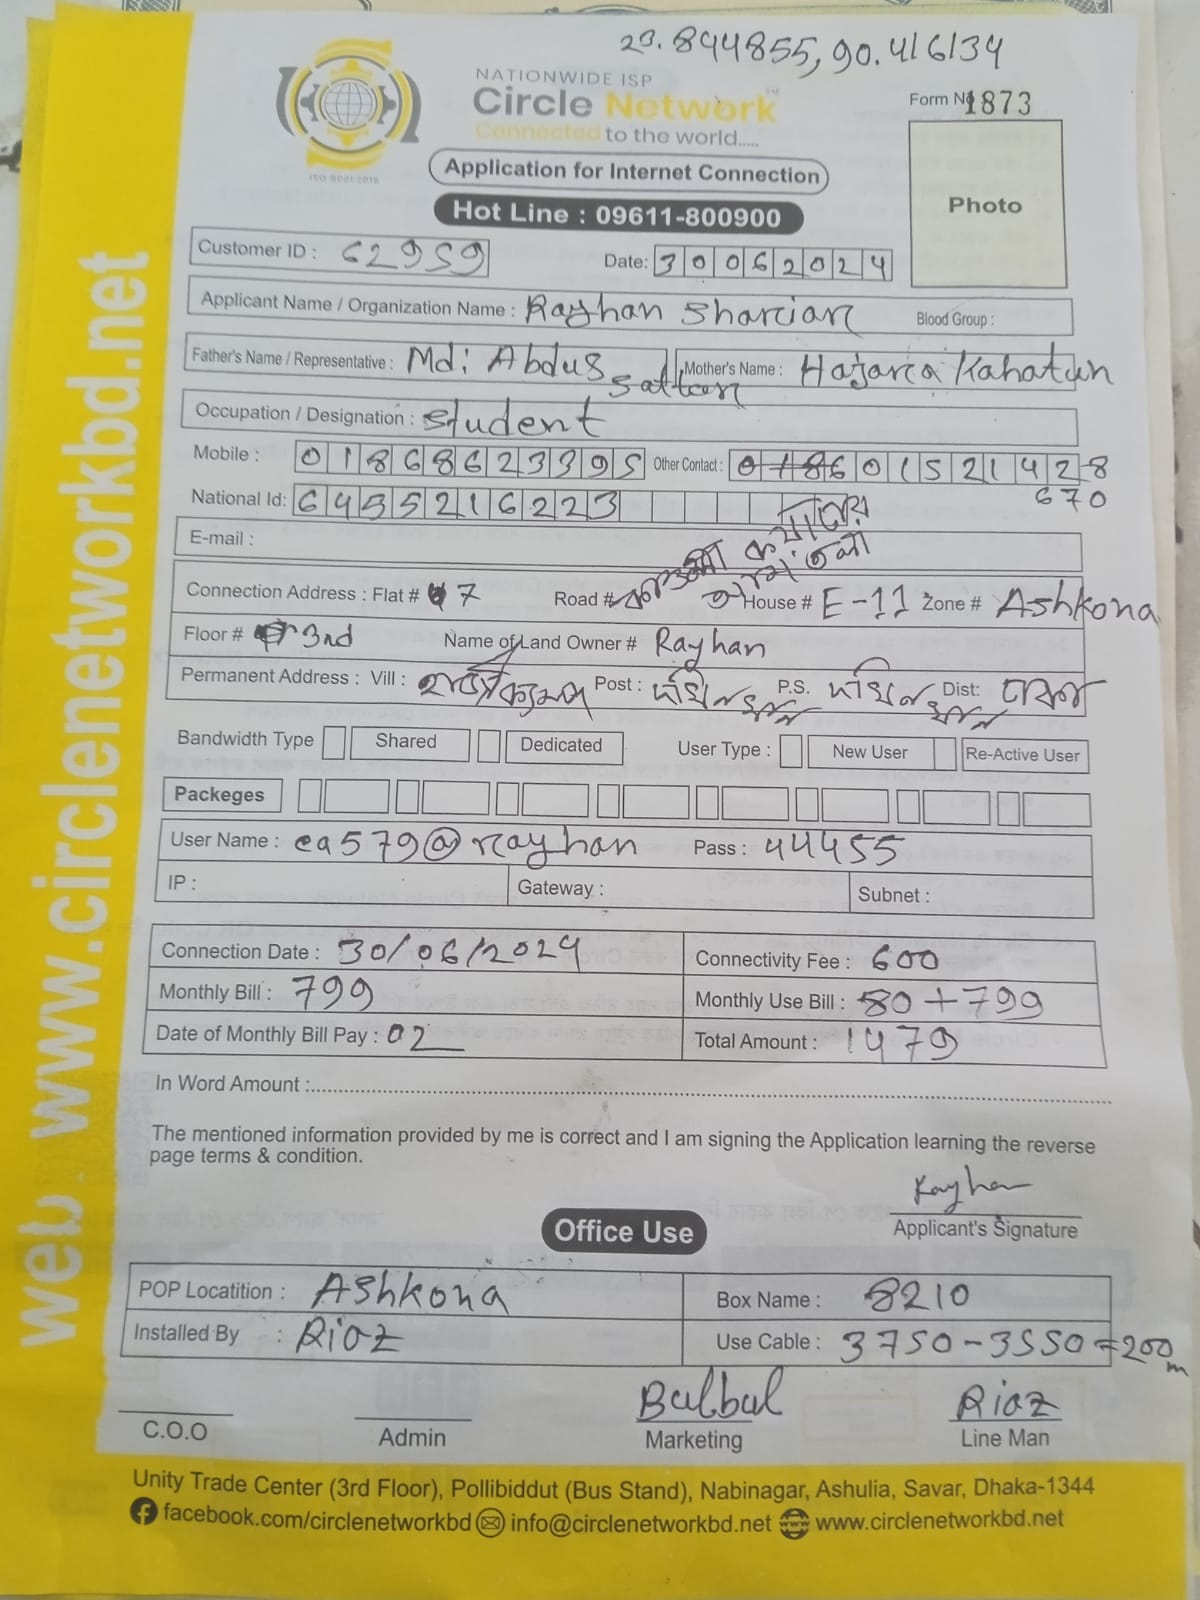 23.844855, 90.416134
NATIONWIDE ISP
Circle Network
Connected to the world.....
ISO 9001:2015
Form № 1873
Application for Internet Connection
Photo
Hot Line : 09611-800900
Customer ID : 62959
Date: 30062024
Applicant Name / Organization Name : Rayhan Sharcian Blood Group :
Father's Name / Representative : Md: Abdus Sattar Mother's Name : Hajara Kahatun
Occupation / Designation : Student
Mobile : 01868623395 Other Contact : 01521428
670
National Id: 6455216223
E-mail :
Connection Address : Flat # 7 Road # House # E-11 Zone # Ashkona
Floor # 3rd Name of Land Owner # Rayhan
Permanent Address : Vill : Post : দক্ষিনখান P.S. দক্ষিনখান Dist: ঢাকা
Bandwidth Type Shared Dedicated User Type : New User Re-Active User
Packeges
User Name : ea579@rayhan Pass : 44455
IP : Gateway : Subnet :
Connection Date : 30/06/2024 Connectivity Fee : 600
Monthly Bill : 799 Monthly Use Bill : 80+799
Date of Monthly Bill Pay : 02 Total Amount : 1479
In Word Amount :
The mentioned information provided by me is correct and I am signing the Application learning the reverse
page terms & condition.
Rayhan
Applicant's Signature
Office Use
POP Locatition : Ashkona Box Name : 8210
Installed By : Riaz Use Cable : 3750-3550=200m
Bulbul Riaz
C.O.O Admin Marketing Line Man
Unity Trade Center (3rd Floor), Pollibiddut (Bus Stand), Nabinagar, Ashulia, Savar, Dhaka-1344
facebook.com/circlenetworkbd info@circlenetworkbd.net www.circlenetworkbd.net
web www.circlenetworkbd.net